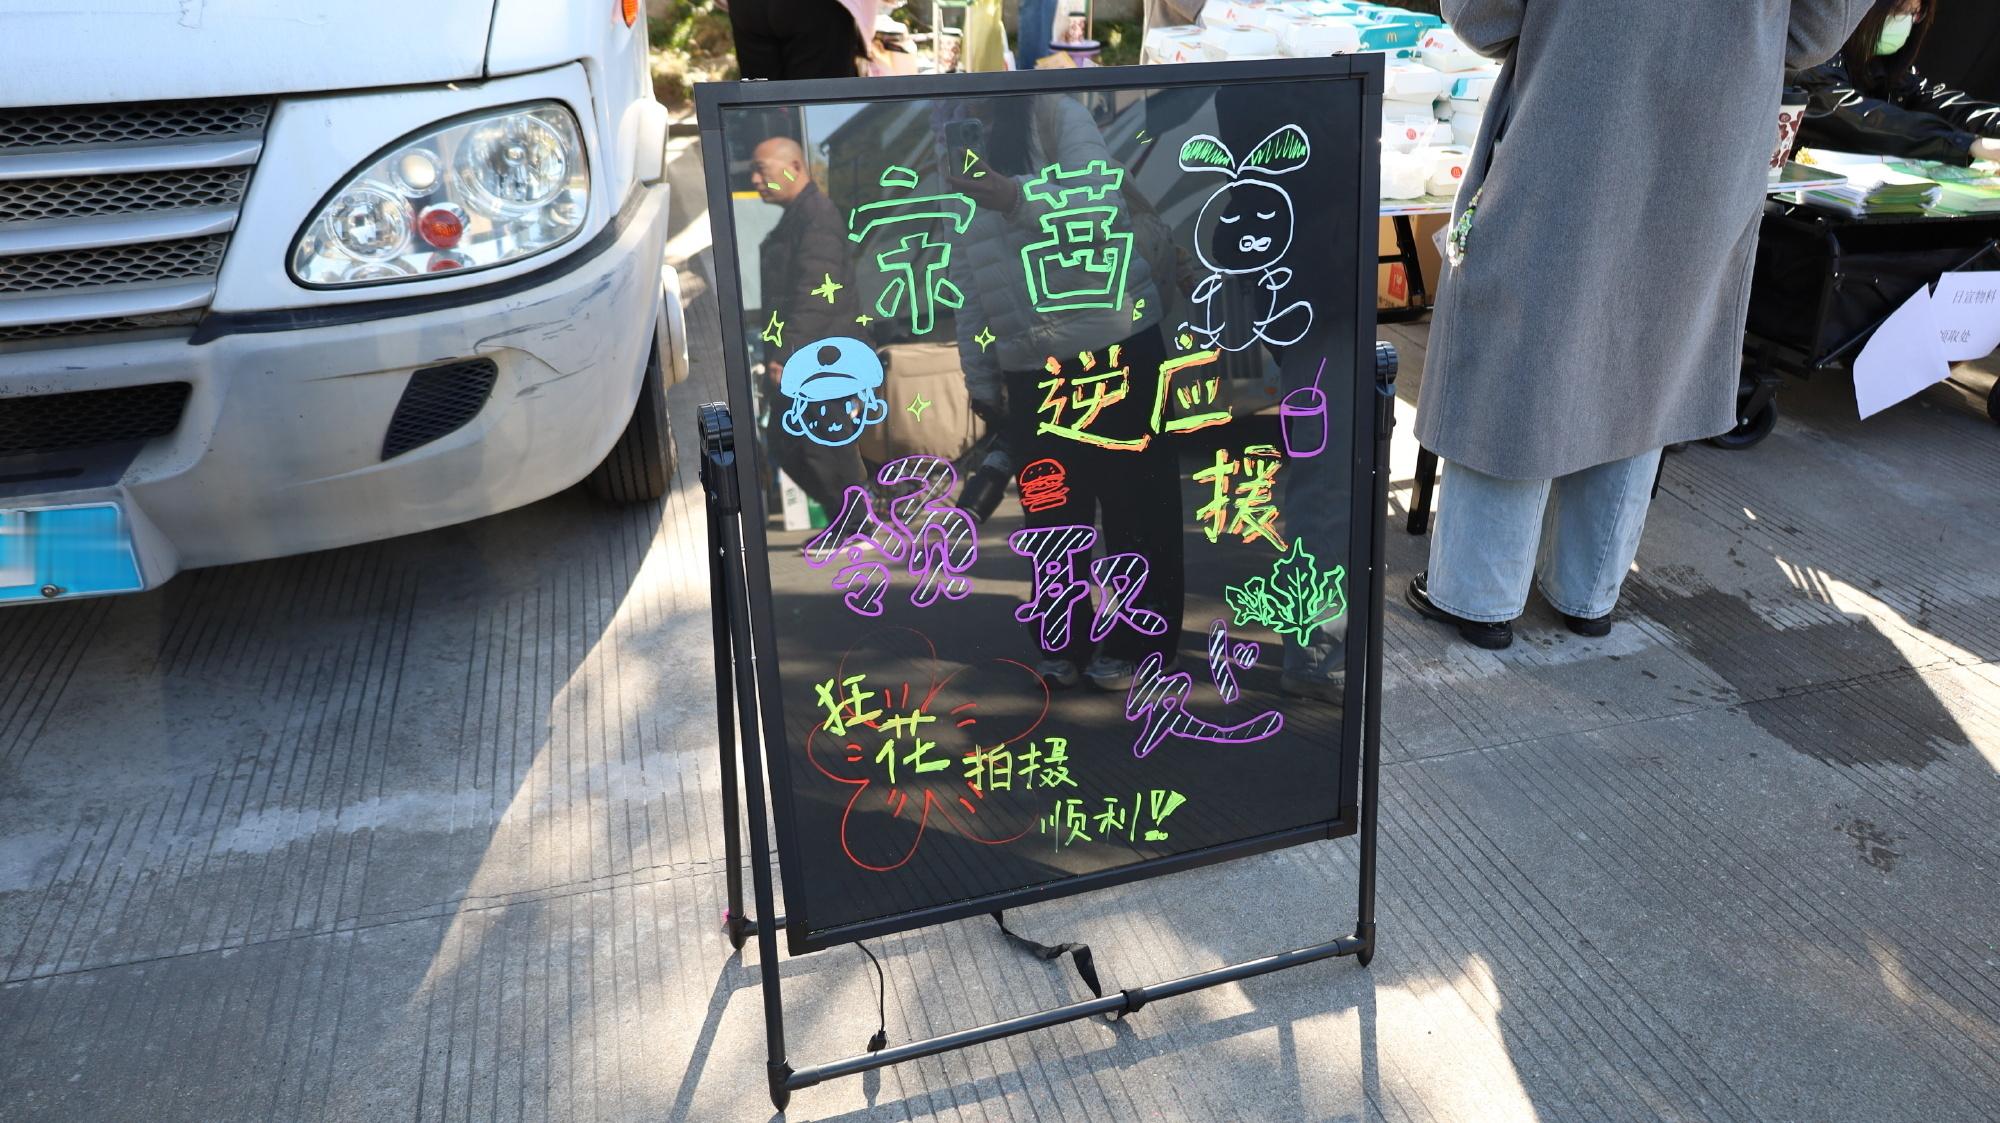 宗茵
逆应
援
领取
处
狂花拍摄
顺利!!
日宣物料
领取处